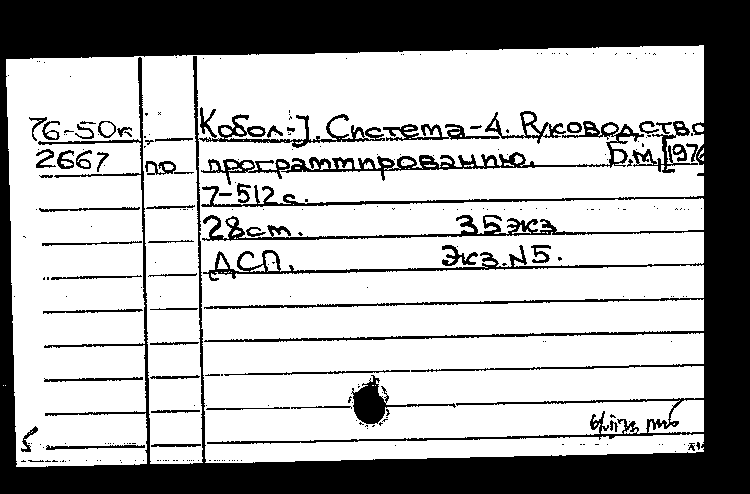 76-50к Кобол-J. Система-4. Руководство
2667 по программированию. Б.м., [1976
7-512 с.
28 см. 35 экз
ДСП. Экз. N5.